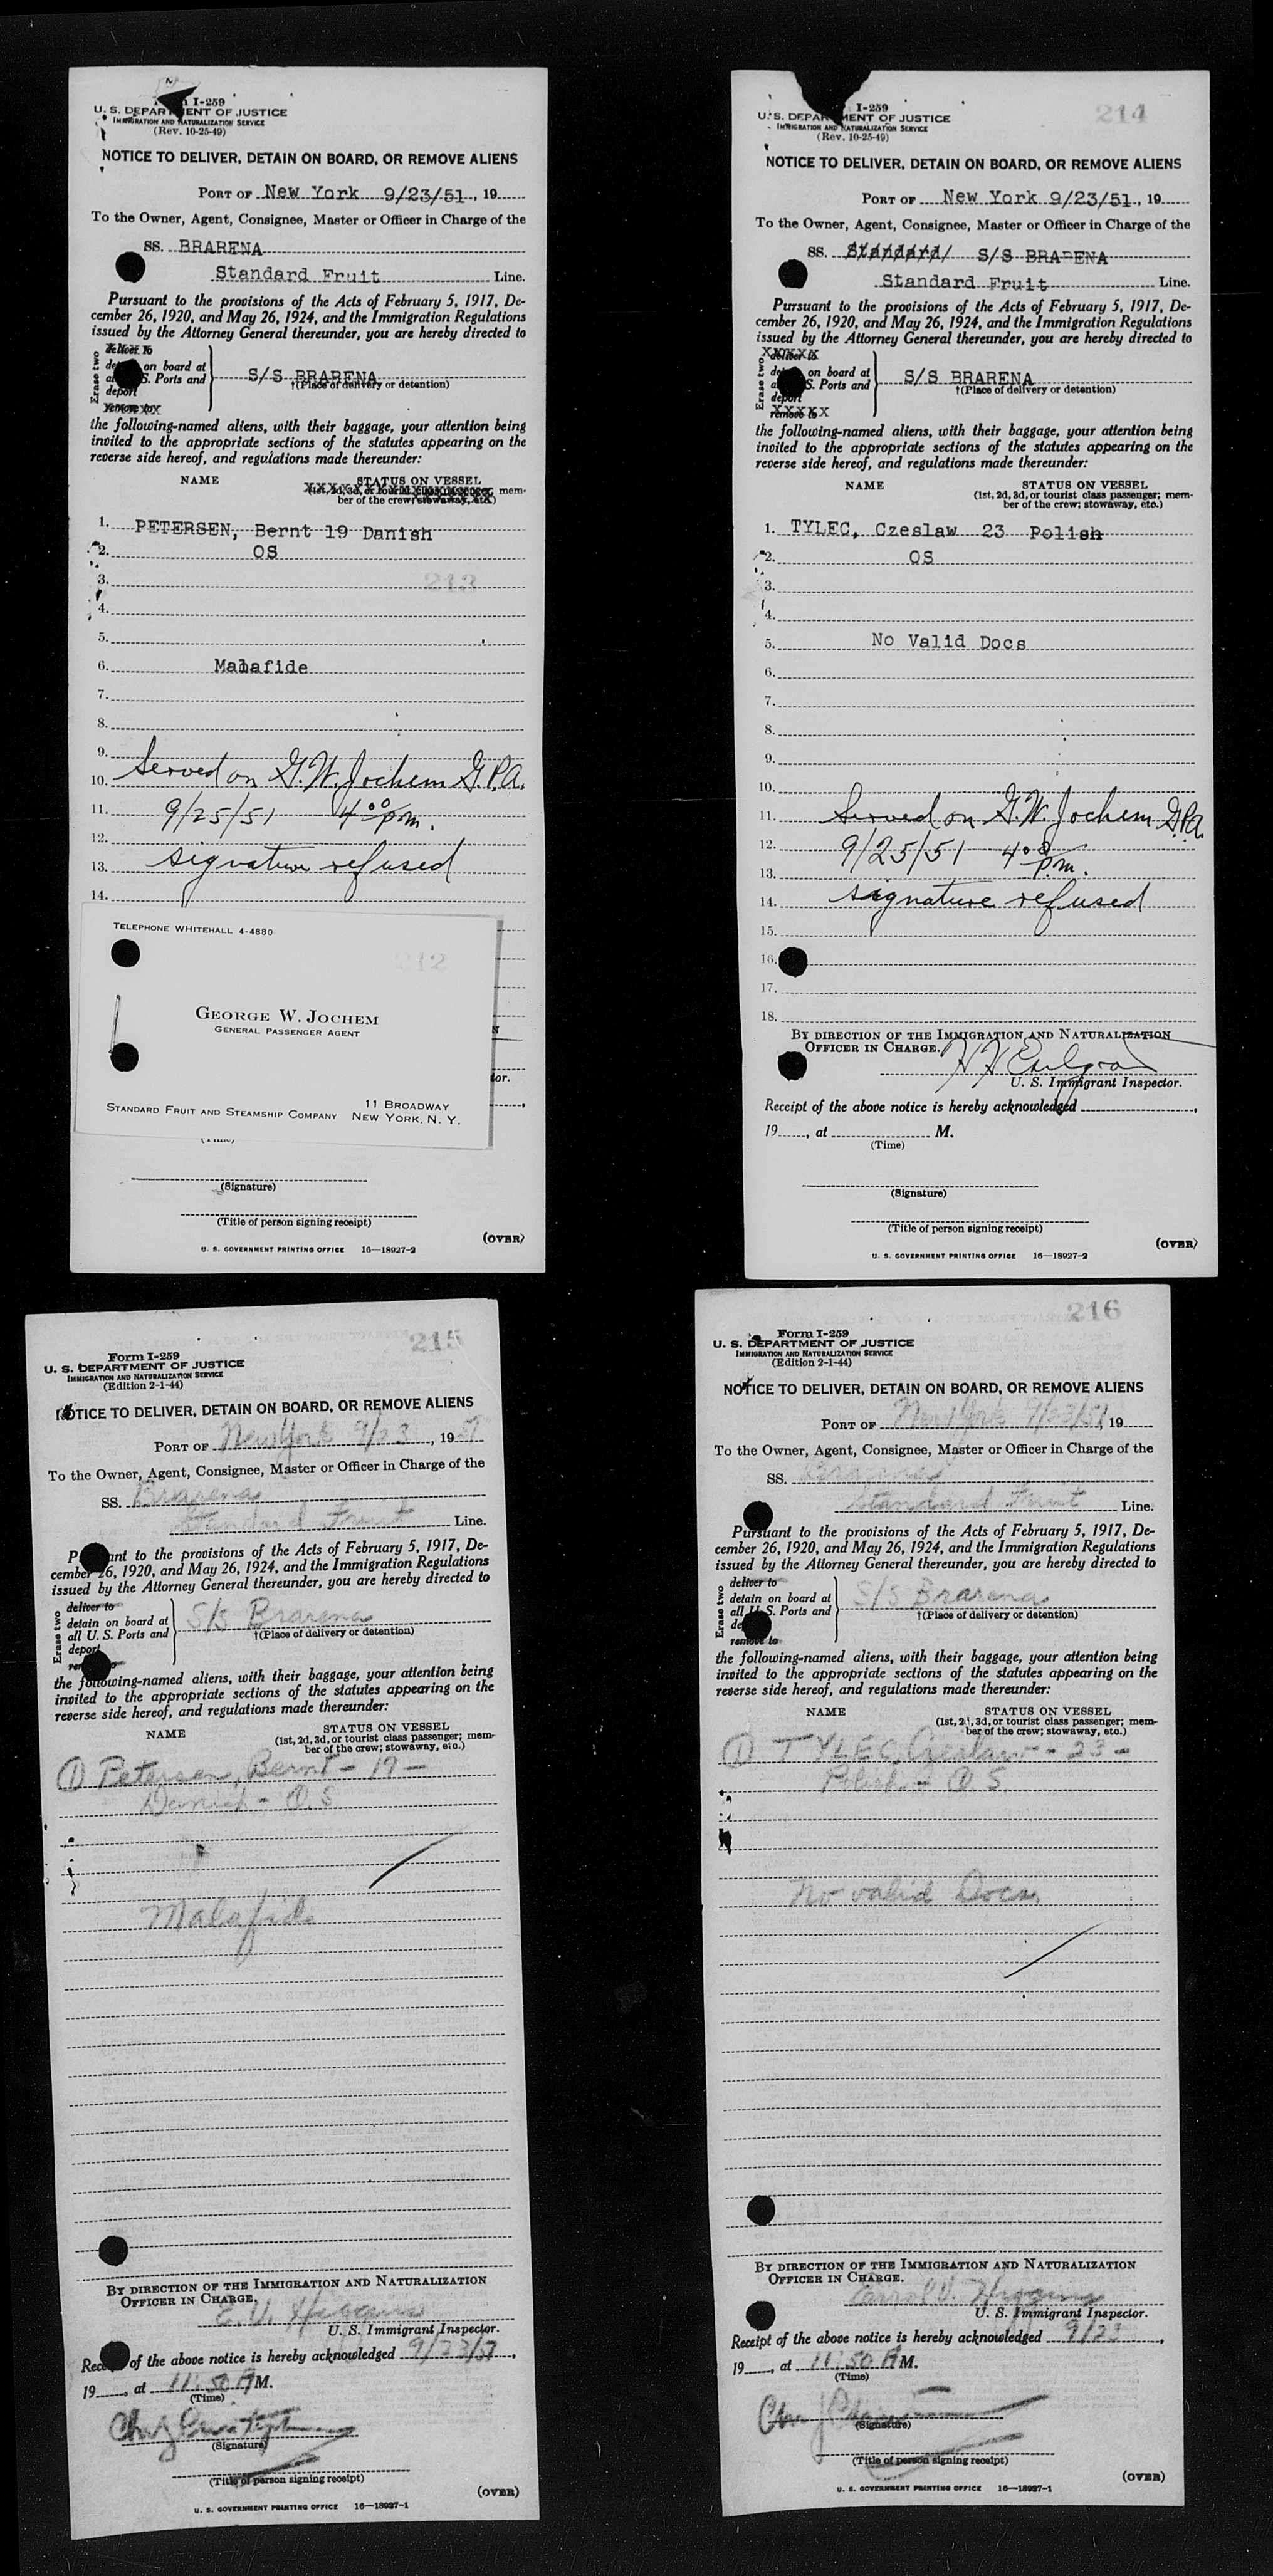 Form I-259
U. S. DEPARTMENT OF JUSTICE
IMMIGRATION AND NATURALIZATION SERVICE
(Rev. 10-25-49)
NOTICE TO DELIVER, DETAIN ON BOARD, OR REMOVE ALIENS
PORT OF New York 9/23/51, 19
To the Owner, Agent, Consignee, Master or Officer in Charge of the
SS. BRARENA
Standard Fruit Line.
Pursuant to the provisions of the Acts of February 5, 1917, De-
cember 26, 1920, and May 26, 1924, and the Immigration Regulations
issued by the Attorney General thereunder, you are hereby directed to
Erase two
deliver to
on board at
S. Ports and
deport
remove to
S/S BRARENA
†(Place of delivery or detention)
the following-named aliens, with their baggage, your attention being
invited to the appropriate sections of the statutes appearing on the
reverse side hereof, and regulations made thereunder:
NAME STATUS ON VESSEL
(1st, 2d, 3d, or tourist class passenger; mem-
ber of the crew; stowaway, etc.)
1. PETERSEN, Bernt 19 Danish
2. OS
3. 213
4.
5.
6. Malafide
7.
8.
9.
10. Served on G.W. Jochem G.P.A.
11. 9/25/51 4 00 pm.
12.
13. signature refused
14.
TELEPHONE WHITEHALL 4-4880
212
GEORGE W. JOCHEM
GENERAL PASSENGER AGENT
STANDARD FRUIT AND STEAMSHIP COMPANY
11 BROADWAY
NEW YORK, N. Y.
tor.
(Time)
(Signature)
(Title of person signing receipt)
(OVER)
U. S. GOVERNMENT PRINTING OFFICE 16—18927-2
214
I-259
U. S. DEPARTMENT OF JUSTICE
IMMIGRATION AND NATURALIZATION SERVICE
(Rev. 10-25-49)
NOTICE TO DELIVER, DETAIN ON BOARD, OR REMOVE ALIENS
PORT OF New York 9/23/51, 19
To the Owner, Agent, Consignee, Master or Officer in Charge of the
SS. Standard S/S BRARENA
Standard Fruit Line.
Pursuant to the provisions of the Acts of February 5, 1917, De-
cember 26, 1920, and May 26, 1924, and the Immigration Regulations
issued by the Attorney General thereunder, you are hereby directed to
Erase two
deliver to
on board at
S. Ports and
deport
remove to
S/S BRARENA
†(Place of delivery or detention)
the following-named aliens, with their baggage, your attention being
invited to the appropriate sections of the statutes appearing on the
reverse side hereof, and regulations made thereunder:
NAME STATUS ON VESSEL
(1st, 2d, 3d, or tourist class passenger; mem-
ber of the crew; stowaway, etc.)
1. TYLEC, Czeslaw 23 Polish
2. OS
3.
4.
5. No Valid Docs
6.
7.
8.
9.
10.
11. Served on G.W. Jochem G.P.A.
12. 9/25/51 4 00 p.m.
13.
14. signature refused
15.
16.
17.
18.
BY DIRECTION OF THE IMMIGRATION AND NATURALIZATION
OFFICER IN CHARGE.
U. S. Immigrant Inspector.
Receipt of the above notice is hereby acknowledged ,
19 , at M.
(Time)
(Signature)
(Title of person signing receipt)
(OVER)
U. S. GOVERNMENT PRINTING OFFICE 16—18927-2
215
Form I-259
U. S. DEPARTMENT OF JUSTICE
IMMIGRATION AND NATURALIZATION SERVICE
(Edition 2-1-44)
NOTICE TO DELIVER, DETAIN ON BOARD, OR REMOVE ALIENS
PORT OF New York 9/23, 1951
To the Owner, Agent, Consignee, Master or Officer in Charge of the
SS. Brarena
Standard Fruit Line.
Pursuant to the provisions of the Acts of February 5, 1917, De-
cember 26, 1920, and May 26, 1924, and the Immigration Regulations
issued by the Attorney General thereunder, you are hereby directed to
Erase two
deliver to
detain on board at
all U. S. Ports and
deport
remove to
S/S Brarena
†(Place of delivery or detention)
the following-named aliens, with their baggage, your attention being
invited to the appropriate sections of the statutes appearing on the
reverse side hereof, and regulations made thereunder:
NAME STATUS ON VESSEL
(1st, 2d, 3d, or tourist class passenger; mem-
ber of the crew; stowaway, etc.)
(1) Petersen, Bernt - 19 -
Danish - O.S.
Malafide
BY DIRECTION OF THE IMMIGRATION AND NATURALIZATION
OFFICER IN CHARGE.
E. V. Higgins
U. S. Immigrant Inspector.
Receipt of the above notice is hereby acknowledged 9/23/51,
19 , at 11:50 A M.
(Time)
(Signature)
(Title of person signing receipt)
(OVER)
U. S. GOVERNMENT PRINTING OFFICE 16—18927-1
216
Form I-259
U. S. DEPARTMENT OF JUSTICE
IMMIGRATION AND NATURALIZATION SERVICE
(Edition 2-1-44)
NOTICE TO DELIVER, DETAIN ON BOARD, OR REMOVE ALIENS
PORT OF New York 9/23/51, 19
To the Owner, Agent, Consignee, Master or Officer in Charge of the
SS. Brarena
Standard Fruit Line.
Pursuant to the provisions of the Acts of February 5, 1917, De-
cember 26, 1920, and May 26, 1924, and the Immigration Regulations
issued by the Attorney General thereunder, you are hereby directed to
Erase two
deliver to
detain on board at
all U. S. Ports and
deport
remove to
S/S Brarena
†(Place of delivery or detention)
the following-named aliens, with their baggage, your attention being
invited to the appropriate sections of the statutes appearing on the
reverse side hereof, and regulations made thereunder:
NAME STATUS ON VESSEL
(1st, 2d, 3d, or tourist class passenger; mem-
ber of the crew; stowaway, etc.)
(1) TYLEC, Czeslaw - 23 -
Polish - O.S.
No valid Docs.
BY DIRECTION OF THE IMMIGRATION AND NATURALIZATION
OFFICER IN CHARGE.
Errol V. Higgins
U. S. Immigrant Inspector.
Receipt of the above notice is hereby acknowledged 9/23,
19 , at 11:50 A M.
(Time)
(Signature)
(Title of person signing receipt)
(OVER)
U. S. GOVERNMENT PRINTING OFFICE 16—18927-1